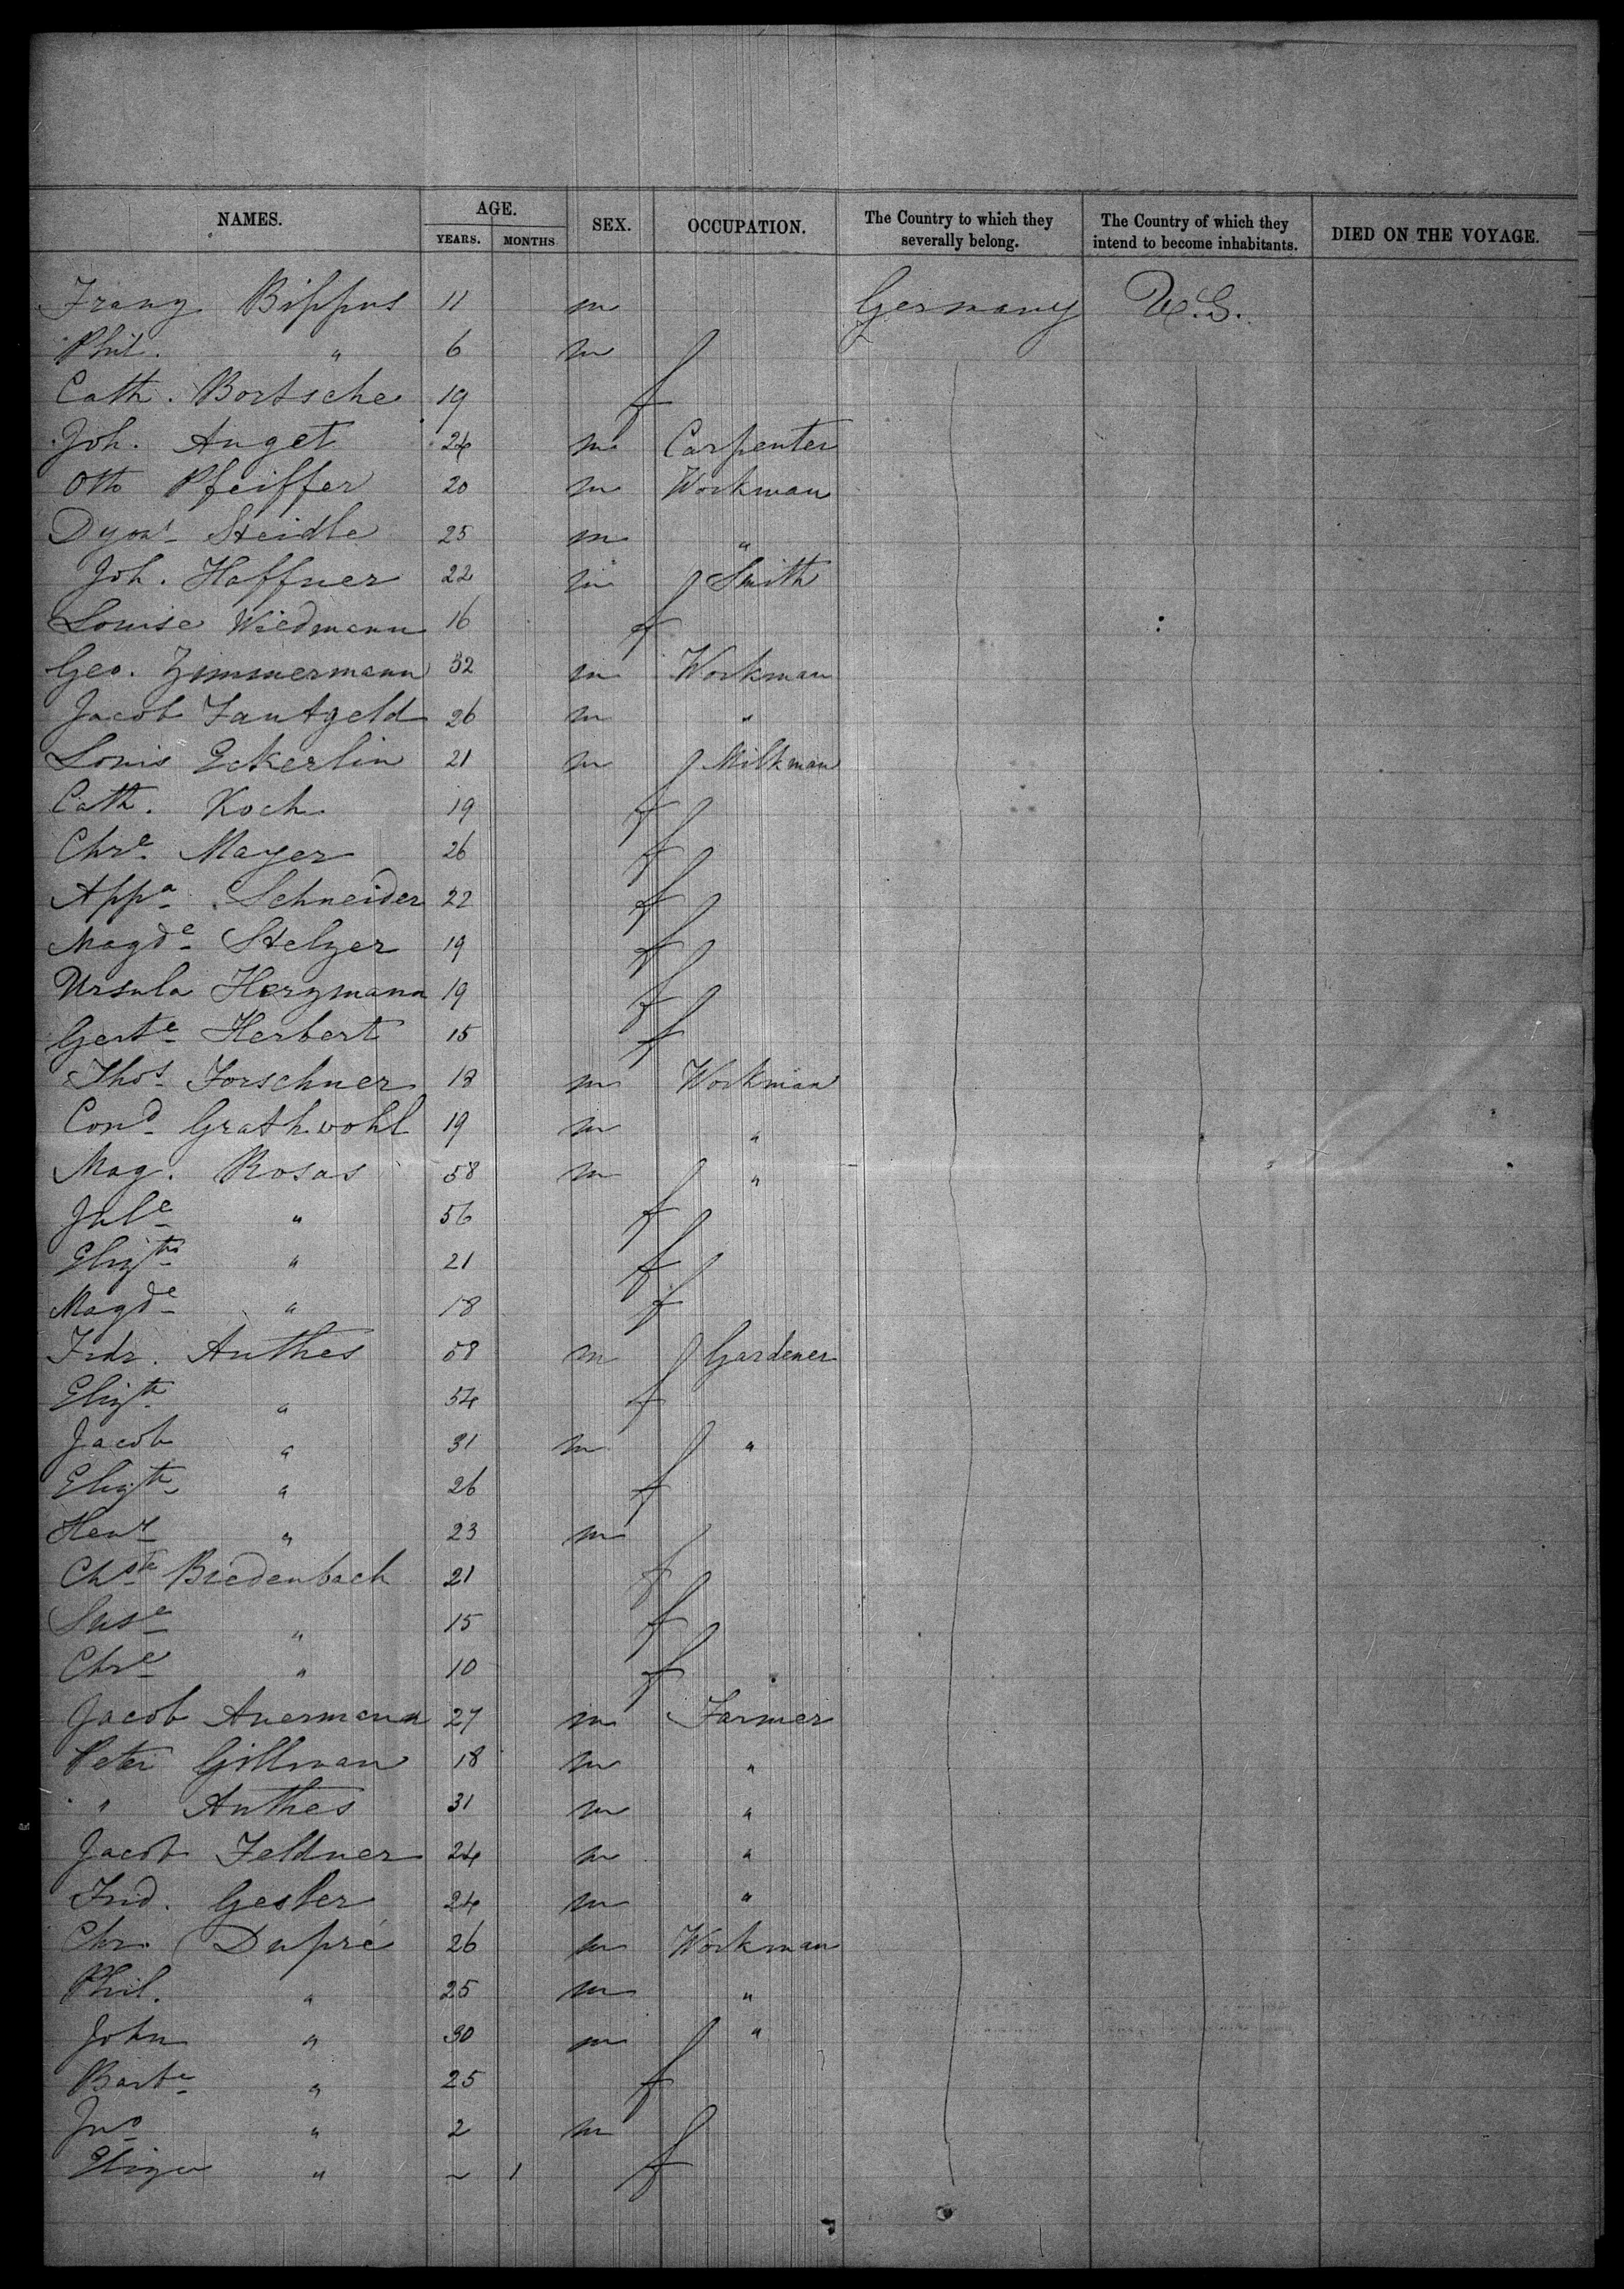 NAMES. AGE. SEX. OCCUPATION. The Country to which they severally belong. The Country of which they intend to become inhabitants. DIED ON THE VOYAGE.
YEARS. MONTHS
Franz Bippus 11 m Germany U.S.
Phil. " 6 m
Cath. Bortsche 19 f
Joh. Anget 24 m Carpenter
Otto Pfeiffer 20 m Workman
Dyon.s Steidle 25 m "
Joh. Haffner 22 m Smith
Louise Wiedmann 16 f
Geo. Zimmermann 32 m Workman
Jacob Fautzeld 26 m "
Louis Eckerlin 21 m Milkman
Cath. Koch 19 f
Chre. Mayer 26 f
Appa. Schneider 22 f
Magde Stelzer 19 f
Ursula Herzmann 19 f
Gerte Herbert 15 f
Thos Forschner 18 m Workman
Cond Grathwohl 19 m "
Mag. Rosas 58 m "
Jule " 56 f
Elizth " 21 f
Magde " 18 f
Frdr. Anthes 58 m Gardener
Elizth " 54 f
Jacob " 31 m "
Elizth " 26 f
Henr " 23 m
Chste Biedenbach 21 f
Suse " 15 f
Chre " 10 f
Jacob Auermann 27 m Farmer
Peter Gillman 18 m "
" Anthes 31 m "
Jacob Feldner 24 m "
Frid. Gesler 24 m "
Chr. Dupré 26 m Workman
Phil. " 25 m "
John " 30 m "
Barbe " 25 f
Jno " 2 m
Eliza " ~ 1 f